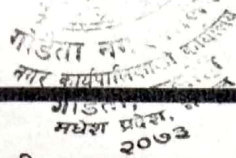 गोडैता नगर
नगर कार्यपालिकाको कार्यालय
गोडैता,
मधेश प्रदेश,
२०७३